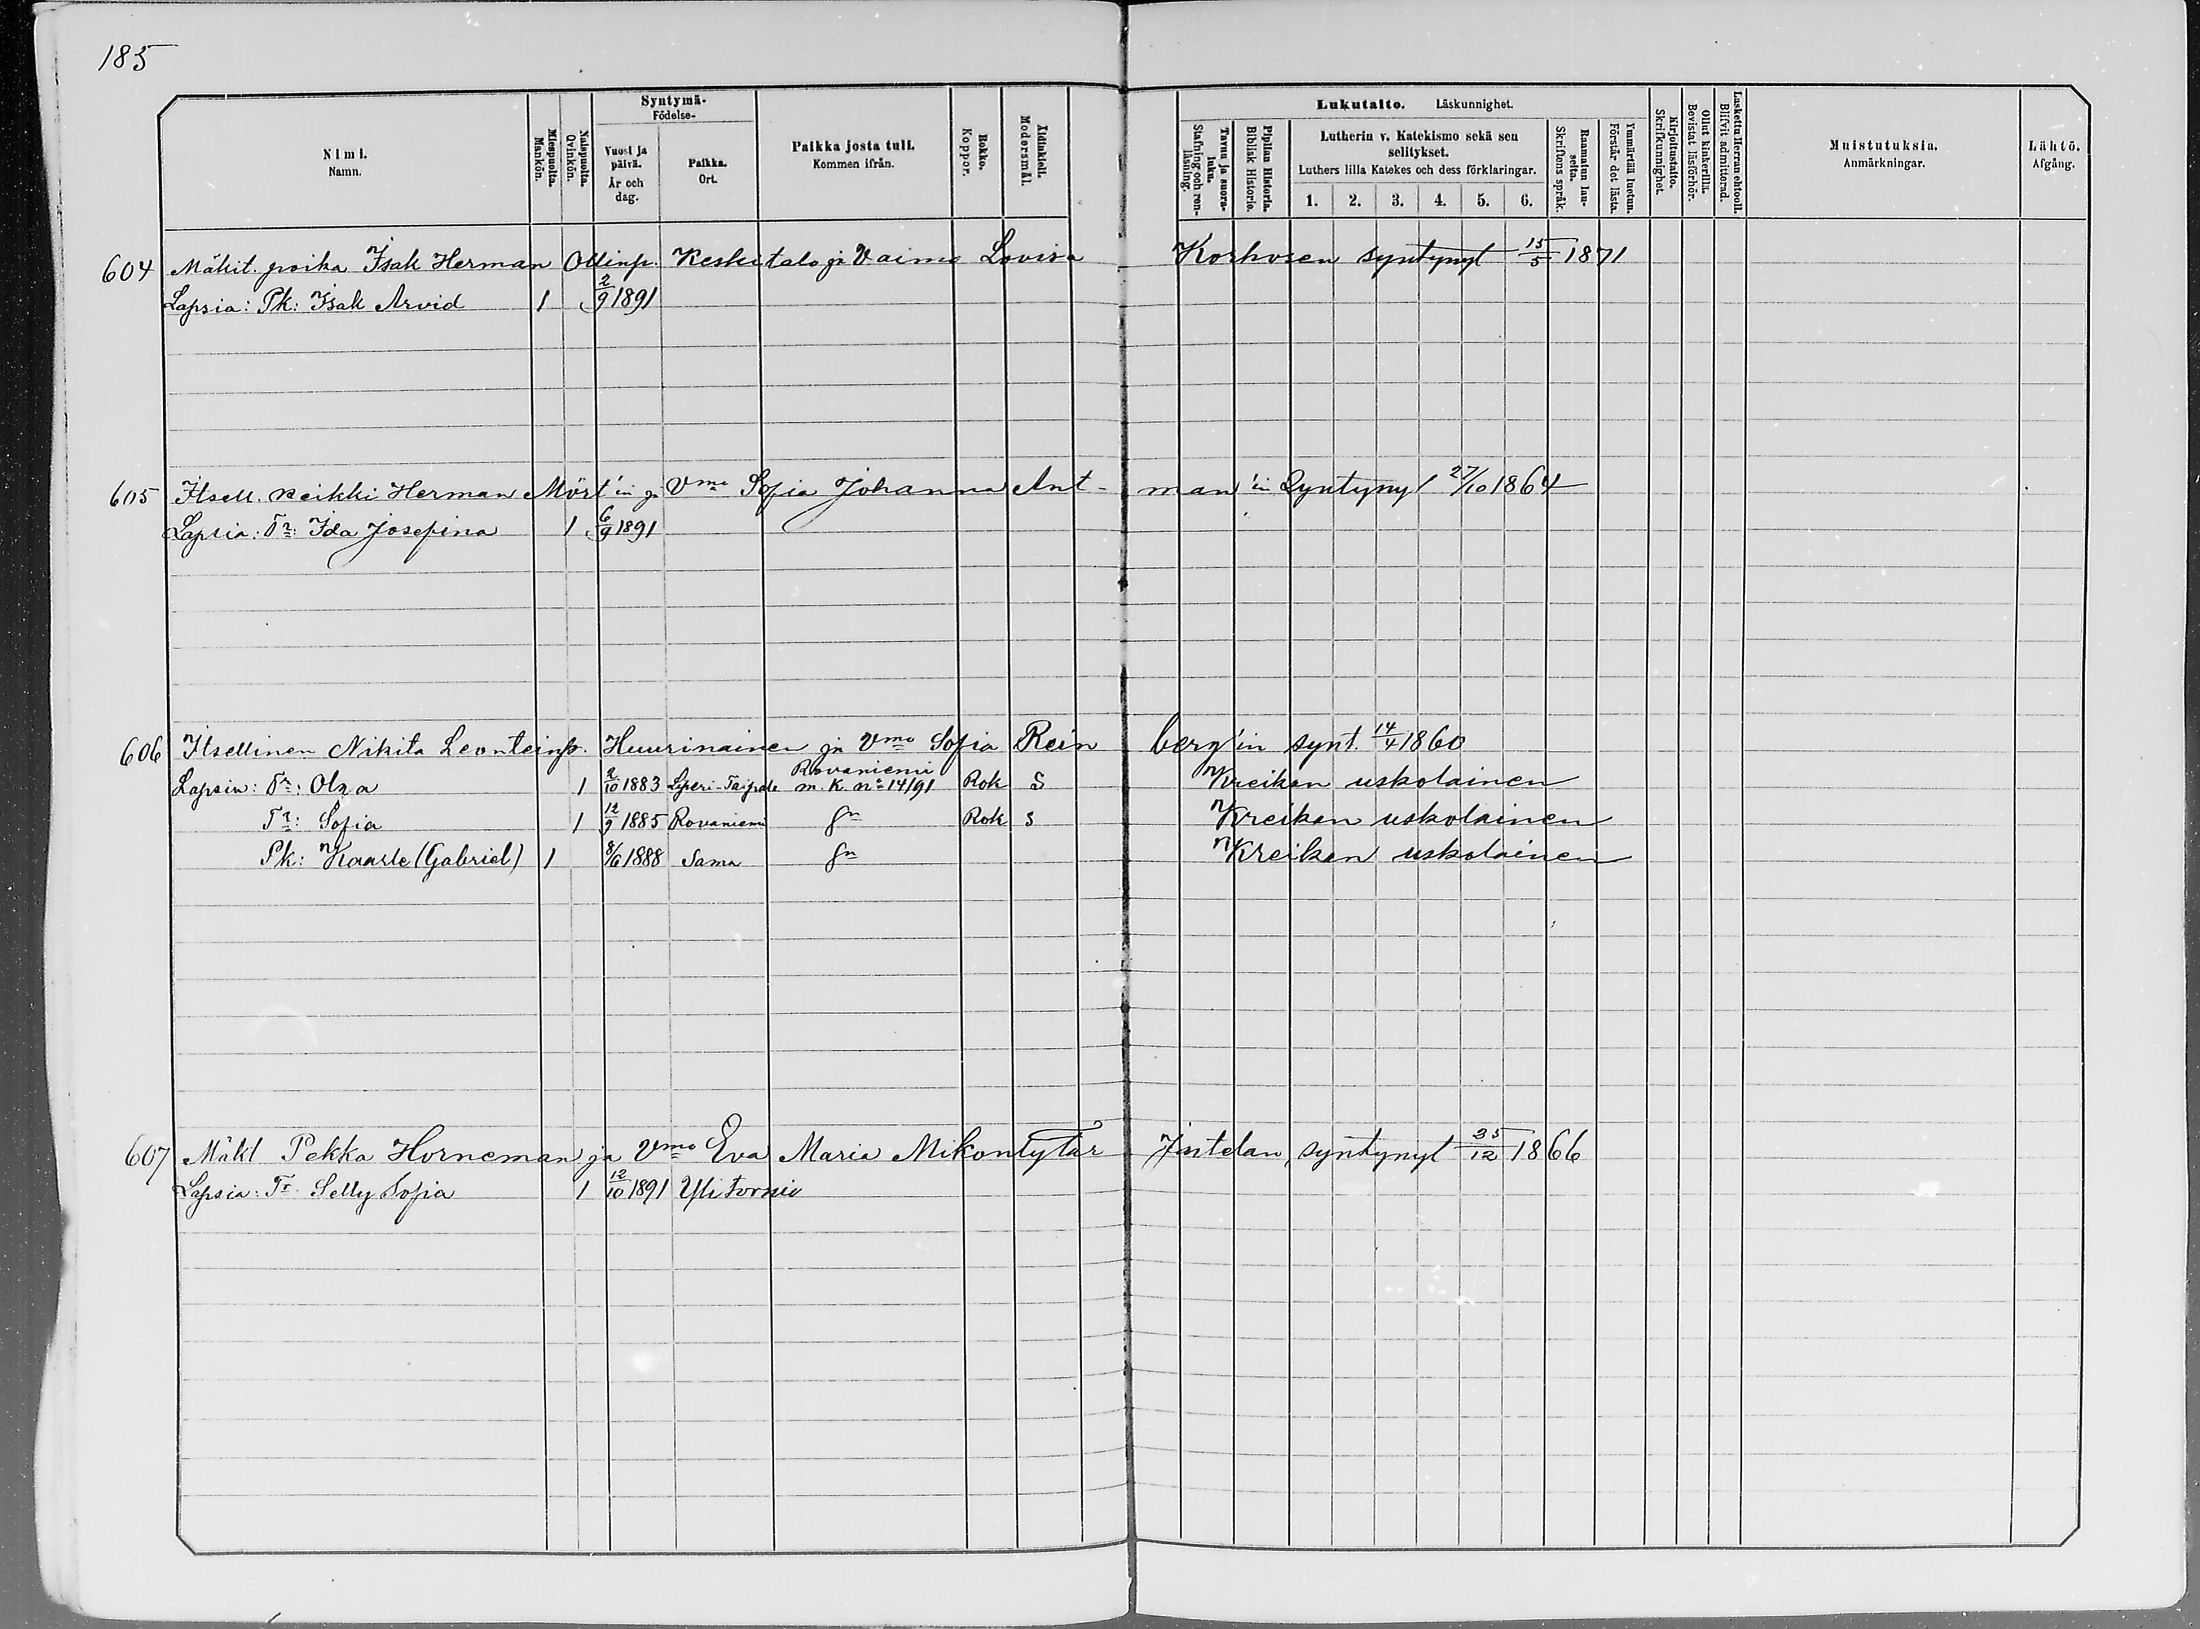 185
Nimi.
Namn.
Miespuolta.
Mankön.
Naispuolta.
Qvinkön.
Syntymä-
Födelse-
Vuosi ja
päivä.
År och
dag.
Paikka.
Ort.
Paikka josta tuli.
Kommen ifrån.
Rokko.
Koppor.
Äidinkieli.
Modersmål.
Lukutaito. Läskunnighet.
Tavuu ja suora-
luku.
Stafning och ren-
läsning.
Piplian Historia.
Biblisk Historie.
Lutherin v. Katekismo sekä sen
selitykset.
Luthers lilla Katekes och dess förklaringar.
1. 2. 3. 4. 5. 6.
Raamatun lau-
seita.
Skriftens språk.
Ymmärtää luetun.
Förstår det lästa.
Kirjoitustaito.
Skrifkunnighet.
Ollut kinkerillä.
Bevistat läsförhör.
Laskettu Herran ehtooll.
Blifvit admitterad.
Muistutuksia.
Anmärkningar.
Lähtö.
Afgång.
604 Mäkit. poika Isak Herman Ollinp. Keskitalo ja Vaimo Lovisa Korhosen syntynyt 15/5 1871
Lapsia: Pk: Isak Arvid 1 2/9 1891
605 Itsell. Heikki Herman Mört'in ja Vmo Sofia Johanna Ant- man'in Syntynyt 27/10 1864
Lapsia: Tr: Ida Josefina 1 6/9 1891
606 Itsellinen Nikita Leonteinp. Huurinainen ja Vmo Sofia Rein berg'in synt. 14/4 1860
Rovaniemi
Lapsia: Tr: Olga 1 2/10 1883 Liperi-Taipale m.K. no 14/91 Rok S Kreikan uskolainen
Tr: Sofia 1 12/9 1885 Rovaniemi Rok S Kreikan uskolainen
Pk: Kaarle (Gabriel) 1 8/6 1888 Sama Kreikan uskolainen
607 Mäkl Pekka Horneman ja Vmo Eva Maria Mikontytär syntynyt 25/12 1866
Lapsia: Tr. Selly Sofia 1 12/10 1891 Yli Tornio